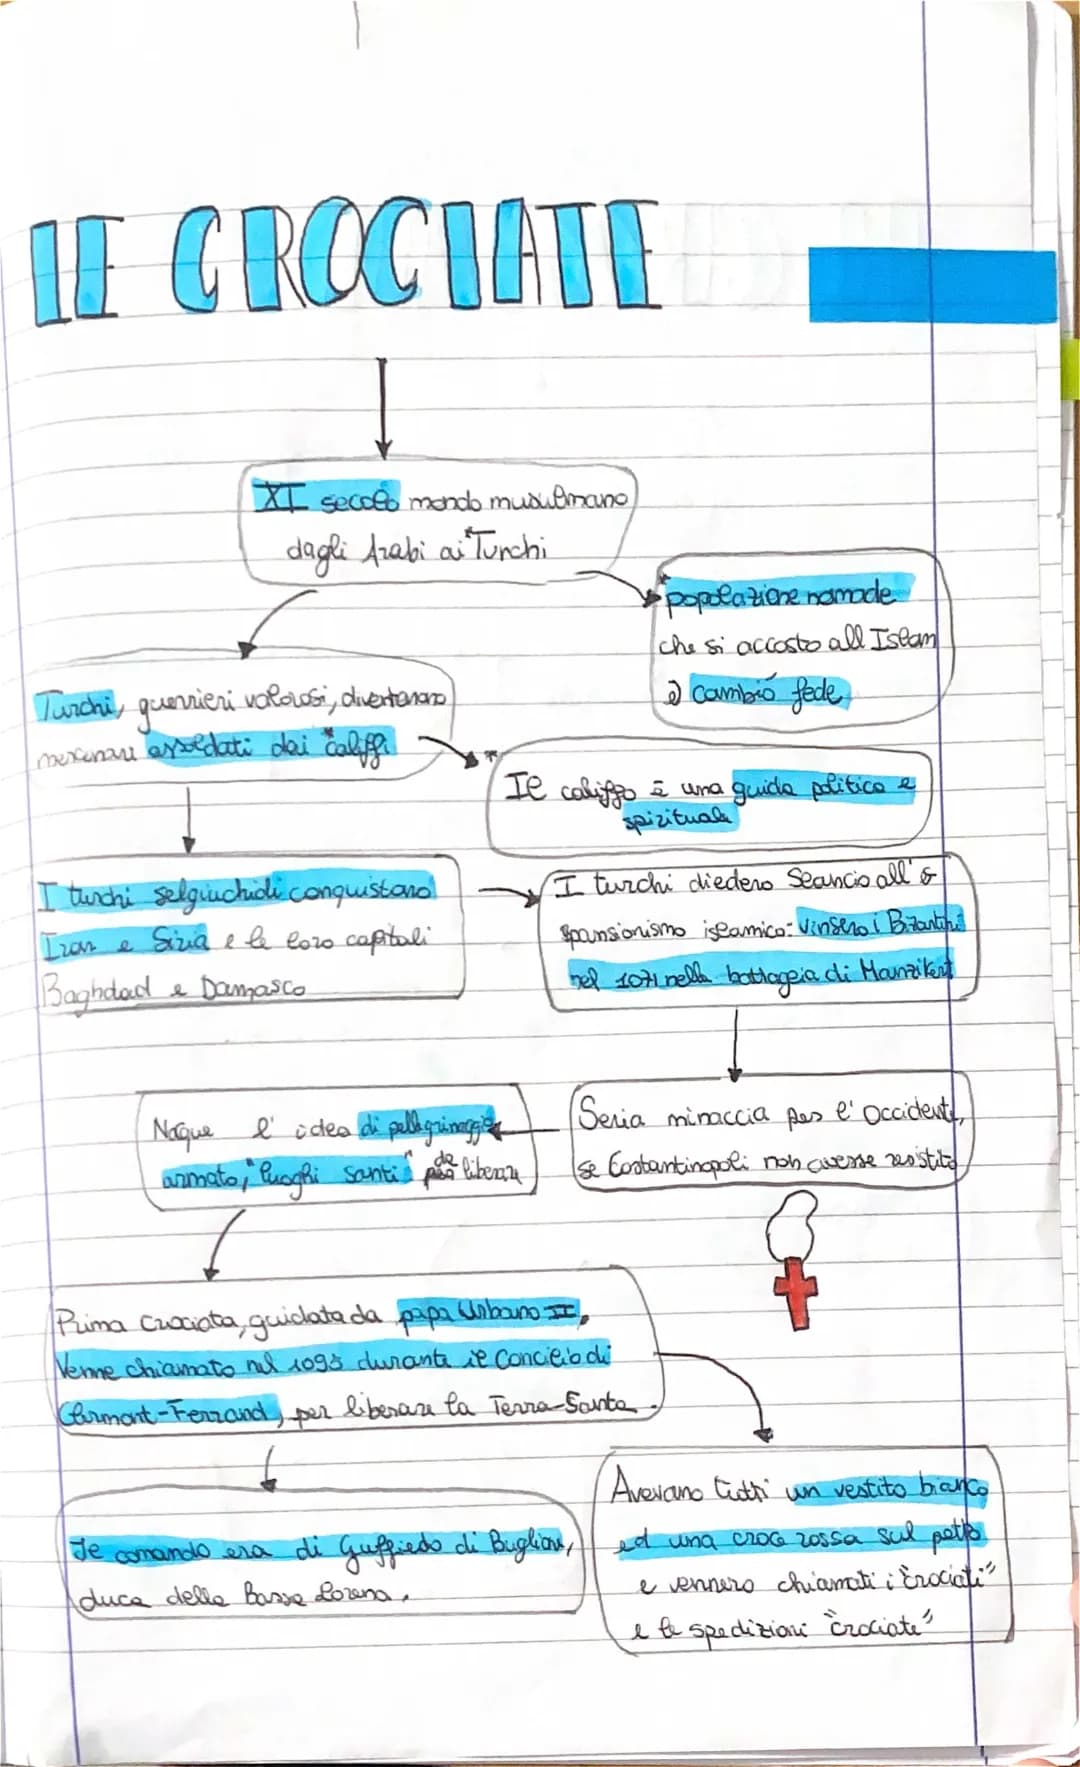 LE CROCIATE
XI secolo mondo musulmano
dagli Arabi ai *Turchi
*popolazione nomade
che si accosto all Islam
e cambiò fede
Turchi, guerrieri valorosi, diventarono
mercenari assoldati dai *califfi
* Il califfo è una guida politica e
spirituale
I turchi selgiuchidi conquistano
Iran e Siria e le loro capitali
Baghdad e Damasco
I turchi diedero slancio all' e
spansionismo islamico: vinsero i Bizantini
nel 1071 nella battaglia di Manzikert
Seria minaccia per l' Occidente,
se Costantinopoli non avesse resistito
Naque l' idea di pellegrinaggio
armato, "luoghi santi" da liberare
Prima crociata, guidata da papa Urbano II,
Venne chiamato nel 1095 durante il Concilio di
Clermont-Ferrand, per liberare la Terra-Santa.
Il comando era di Guffredo di Buglione,
duca della Bassa Lorena.
Avevano tutti un vestito bianco
ed una croce rossa sul petto
e vennero chiamati i "crociati"
e le spedizioni "crociate"